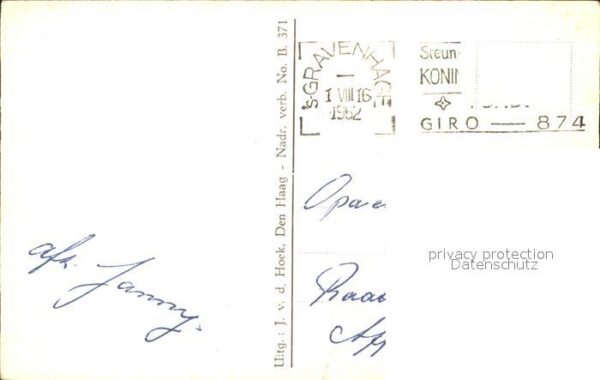 's-GRAVENHAGE
1 VIII 16
1962
Steun
KONI
GIRO — 874
Uitg.: J. v. d. Hoek, Den Haag - Nadr. verb. No. B. 371
Opa e
afz. Janny.
privacy protection
Datenschutz
Raa